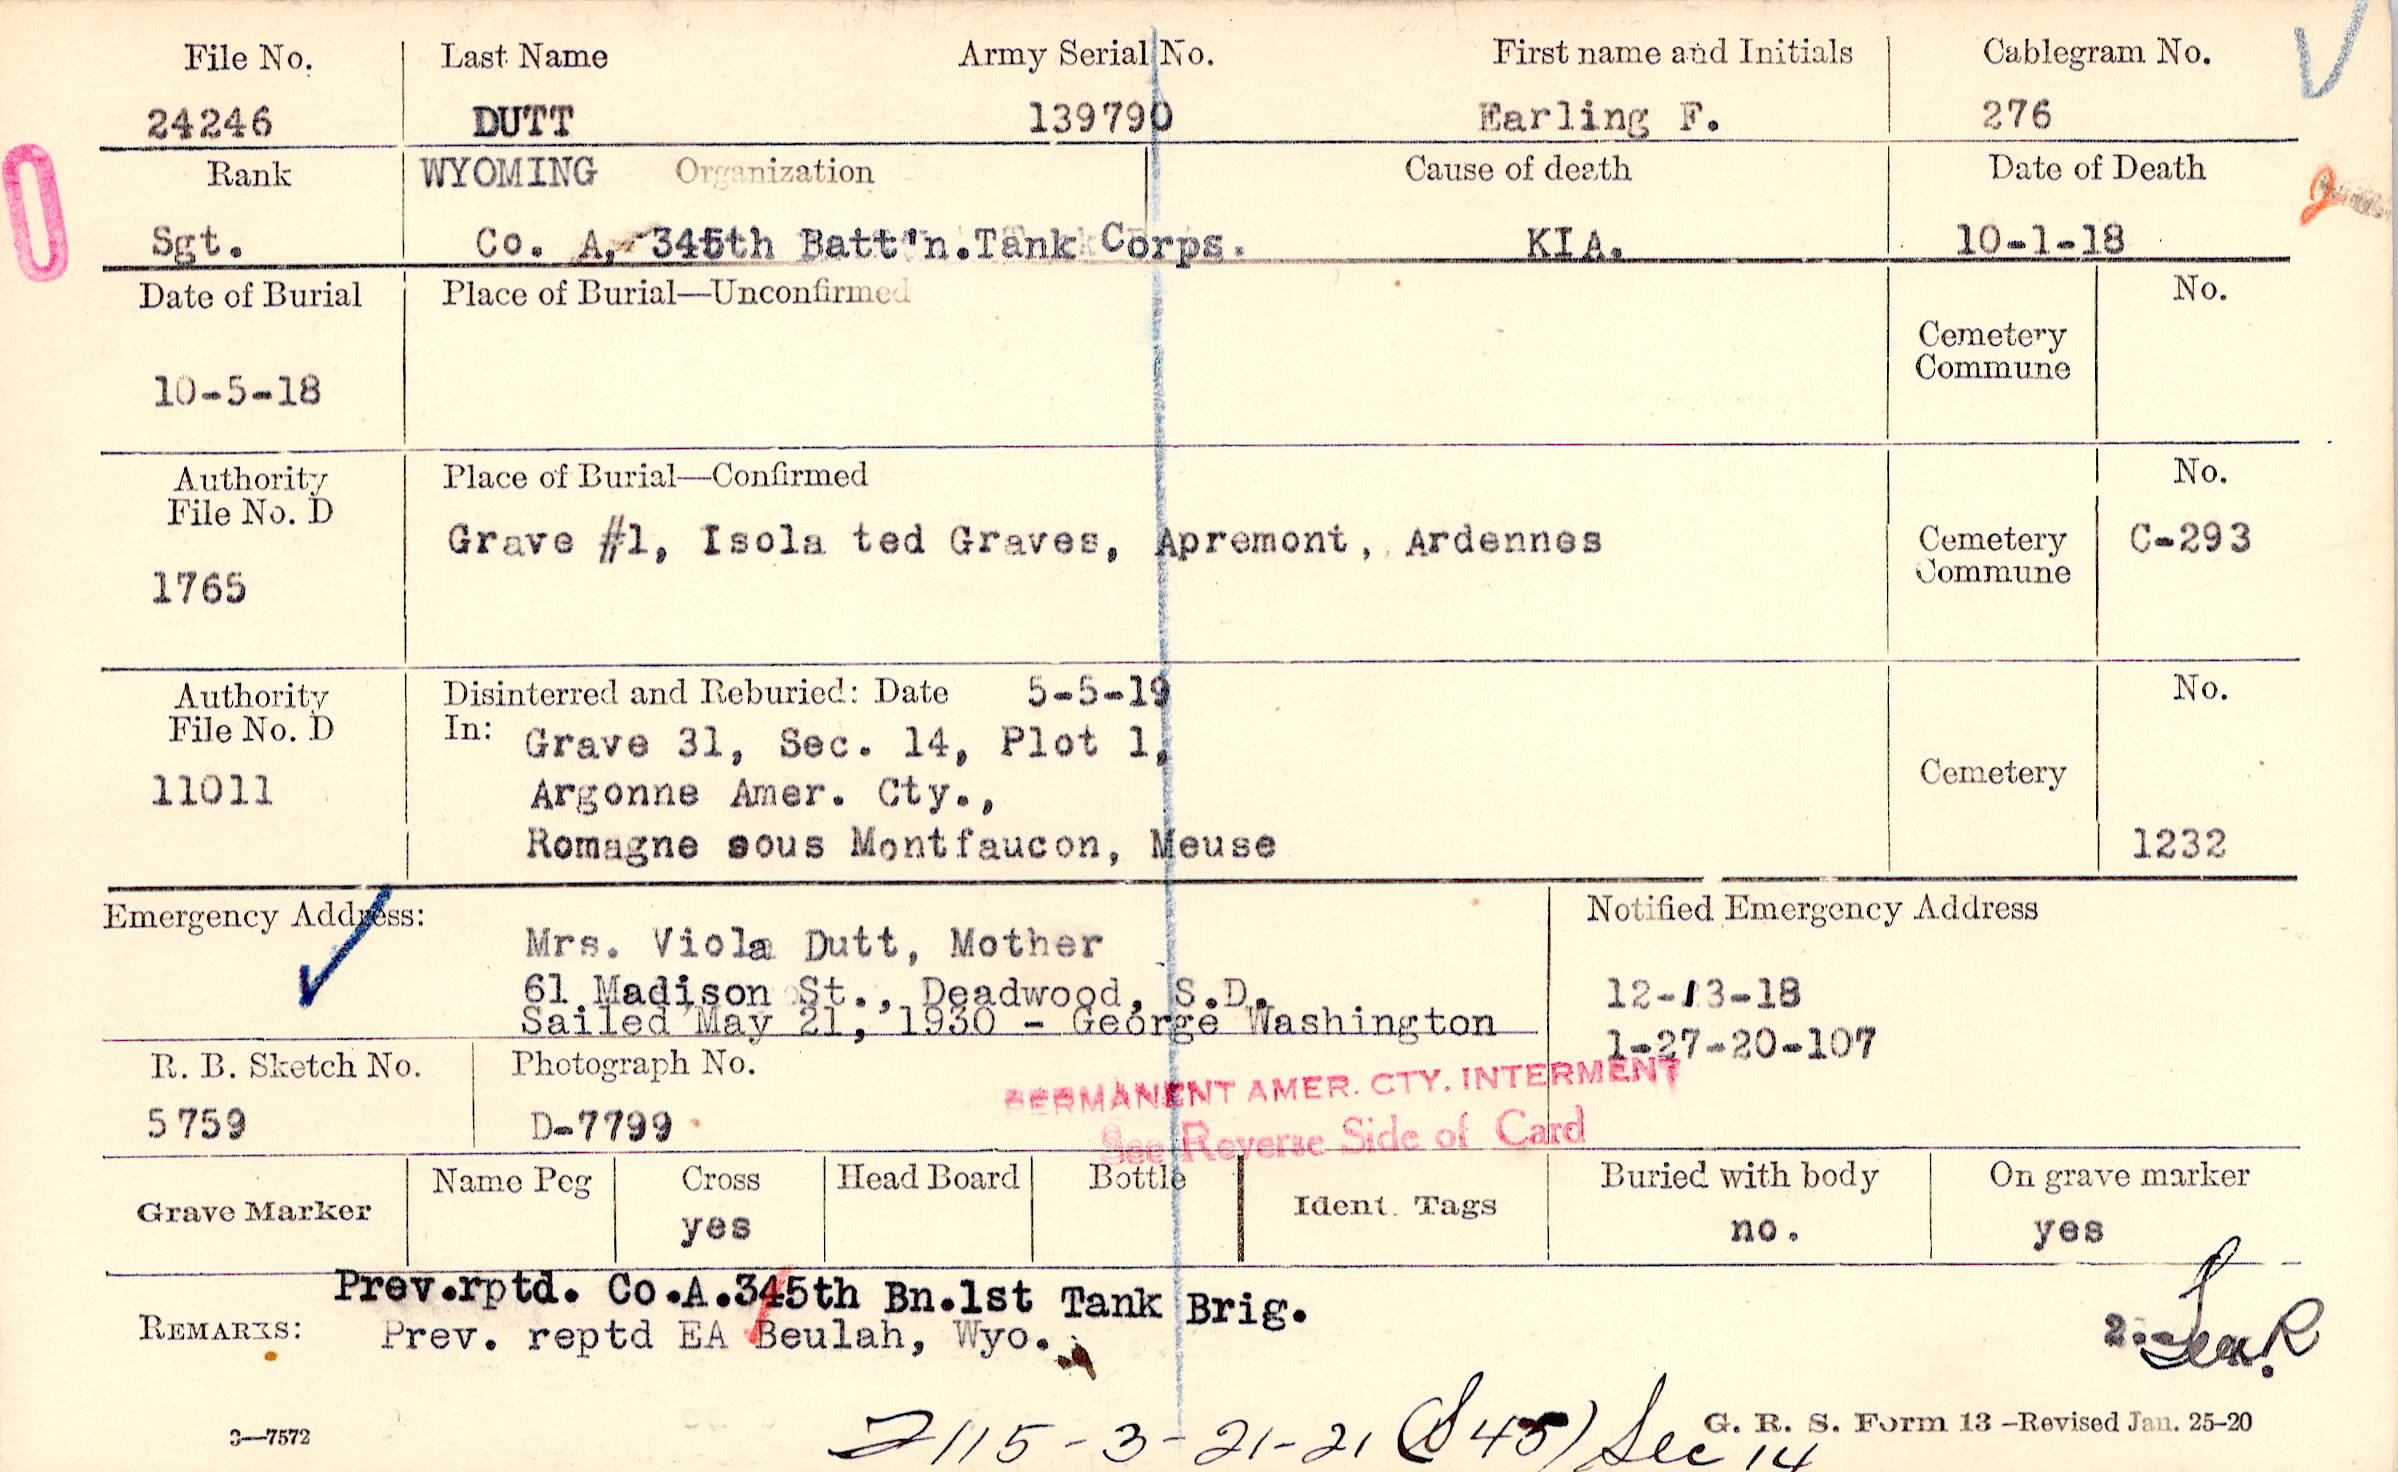 File No. Last Name Army Serial No. First name and Initials Cablegram No.
24246 DUTT 139790 Earling F. 276
Rank WYOMING Organization Cause of death Date of Death
Sgt. Co. A, 345th Batt'n.Tank Corps. KIA. 10-1-18
Date of Burial Place of Burial—Unconfirmed No.
Cemetery
Commune
10-5-18
Authority Place of Burial—Confirmed No.
File No. D
Grave #1, Isola ted Graves, Apremont, Ardennes Cemetery C-293
Commune
1765
Authority Disinterred and Reburied: Date 5-5-19 No.
File No. D In: Grave 31, Sec. 14, Plot 1,
11011 Argonne Amer. Cty., Cemetery
Romagne sous Montfaucon, Meuse 1232
Emergency Address: Notified Emergency Address
Mrs. Viola Dutt, Mother
61 Madison St., Deadwood, S.D. 12-13-18
Sailed May 21, 1930 - George Washington
1-27-20-107
R. B. Sketch No. Photograph No.
PERMANENT AMER. CTY. INTERMENT
5759 D-7799 See Reverse Side of Card
Grave Marker Name Peg Cross Head Board Bottle Ident. Tags Buried with body On grave marker
yes no. yes
Prev.rptd. Co.A.345th Bn.1st Tank Brig.
REMARKS: Prev. reptd EA Beulah, Wyo.
2115-3-21-21 (S45) Sec 14
3—7572 G. R. S. Form 13 -Revised Jan. 25-20